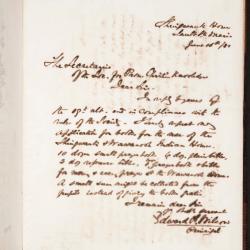 Shingwauk Home
Sault Ste Marie
June 10th / 80
The Secretaries
of the Soc. for Prom. Christ. Knowledge
Dear Sir,
In reply to yours of
the 19th ult. and in compliance with the
rules of the Society - I
application for books for the use of the
Shingwauk & Wawanosh Indian Homes.
10 dozen small prayer books 6 doz. plain bibles
2 doz reference bibles
for men, & at the Wawanosh Home.
A small sum might be collected from the
pupils instead of giving the books gratis.
I remain dear Sir
Edward F. Wilson
Principal